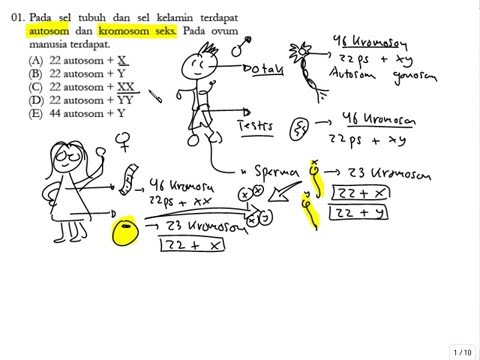 01. Pada sel tubuh dan sel kelamin terdapat
autosom dan kromosom seks. Pada ovum
manusia terdapat.
(A) 22 autosom + X
(B) 22 autosom + Y
(C) 22 autosom + XX
(D) 22 autosom + YY
(E) 44 autosom + Y
Otak
46 Kromosom
22 ps + xy
Autosom gonosom
Testis
46 Kromosom
22 ps + xy
Sperma
x
y
23 Kromosom
22 + x
22 + y
x x
x y
46 Kromosom
22 ps + xx
23 Kromosom
22 + x
1 / 10